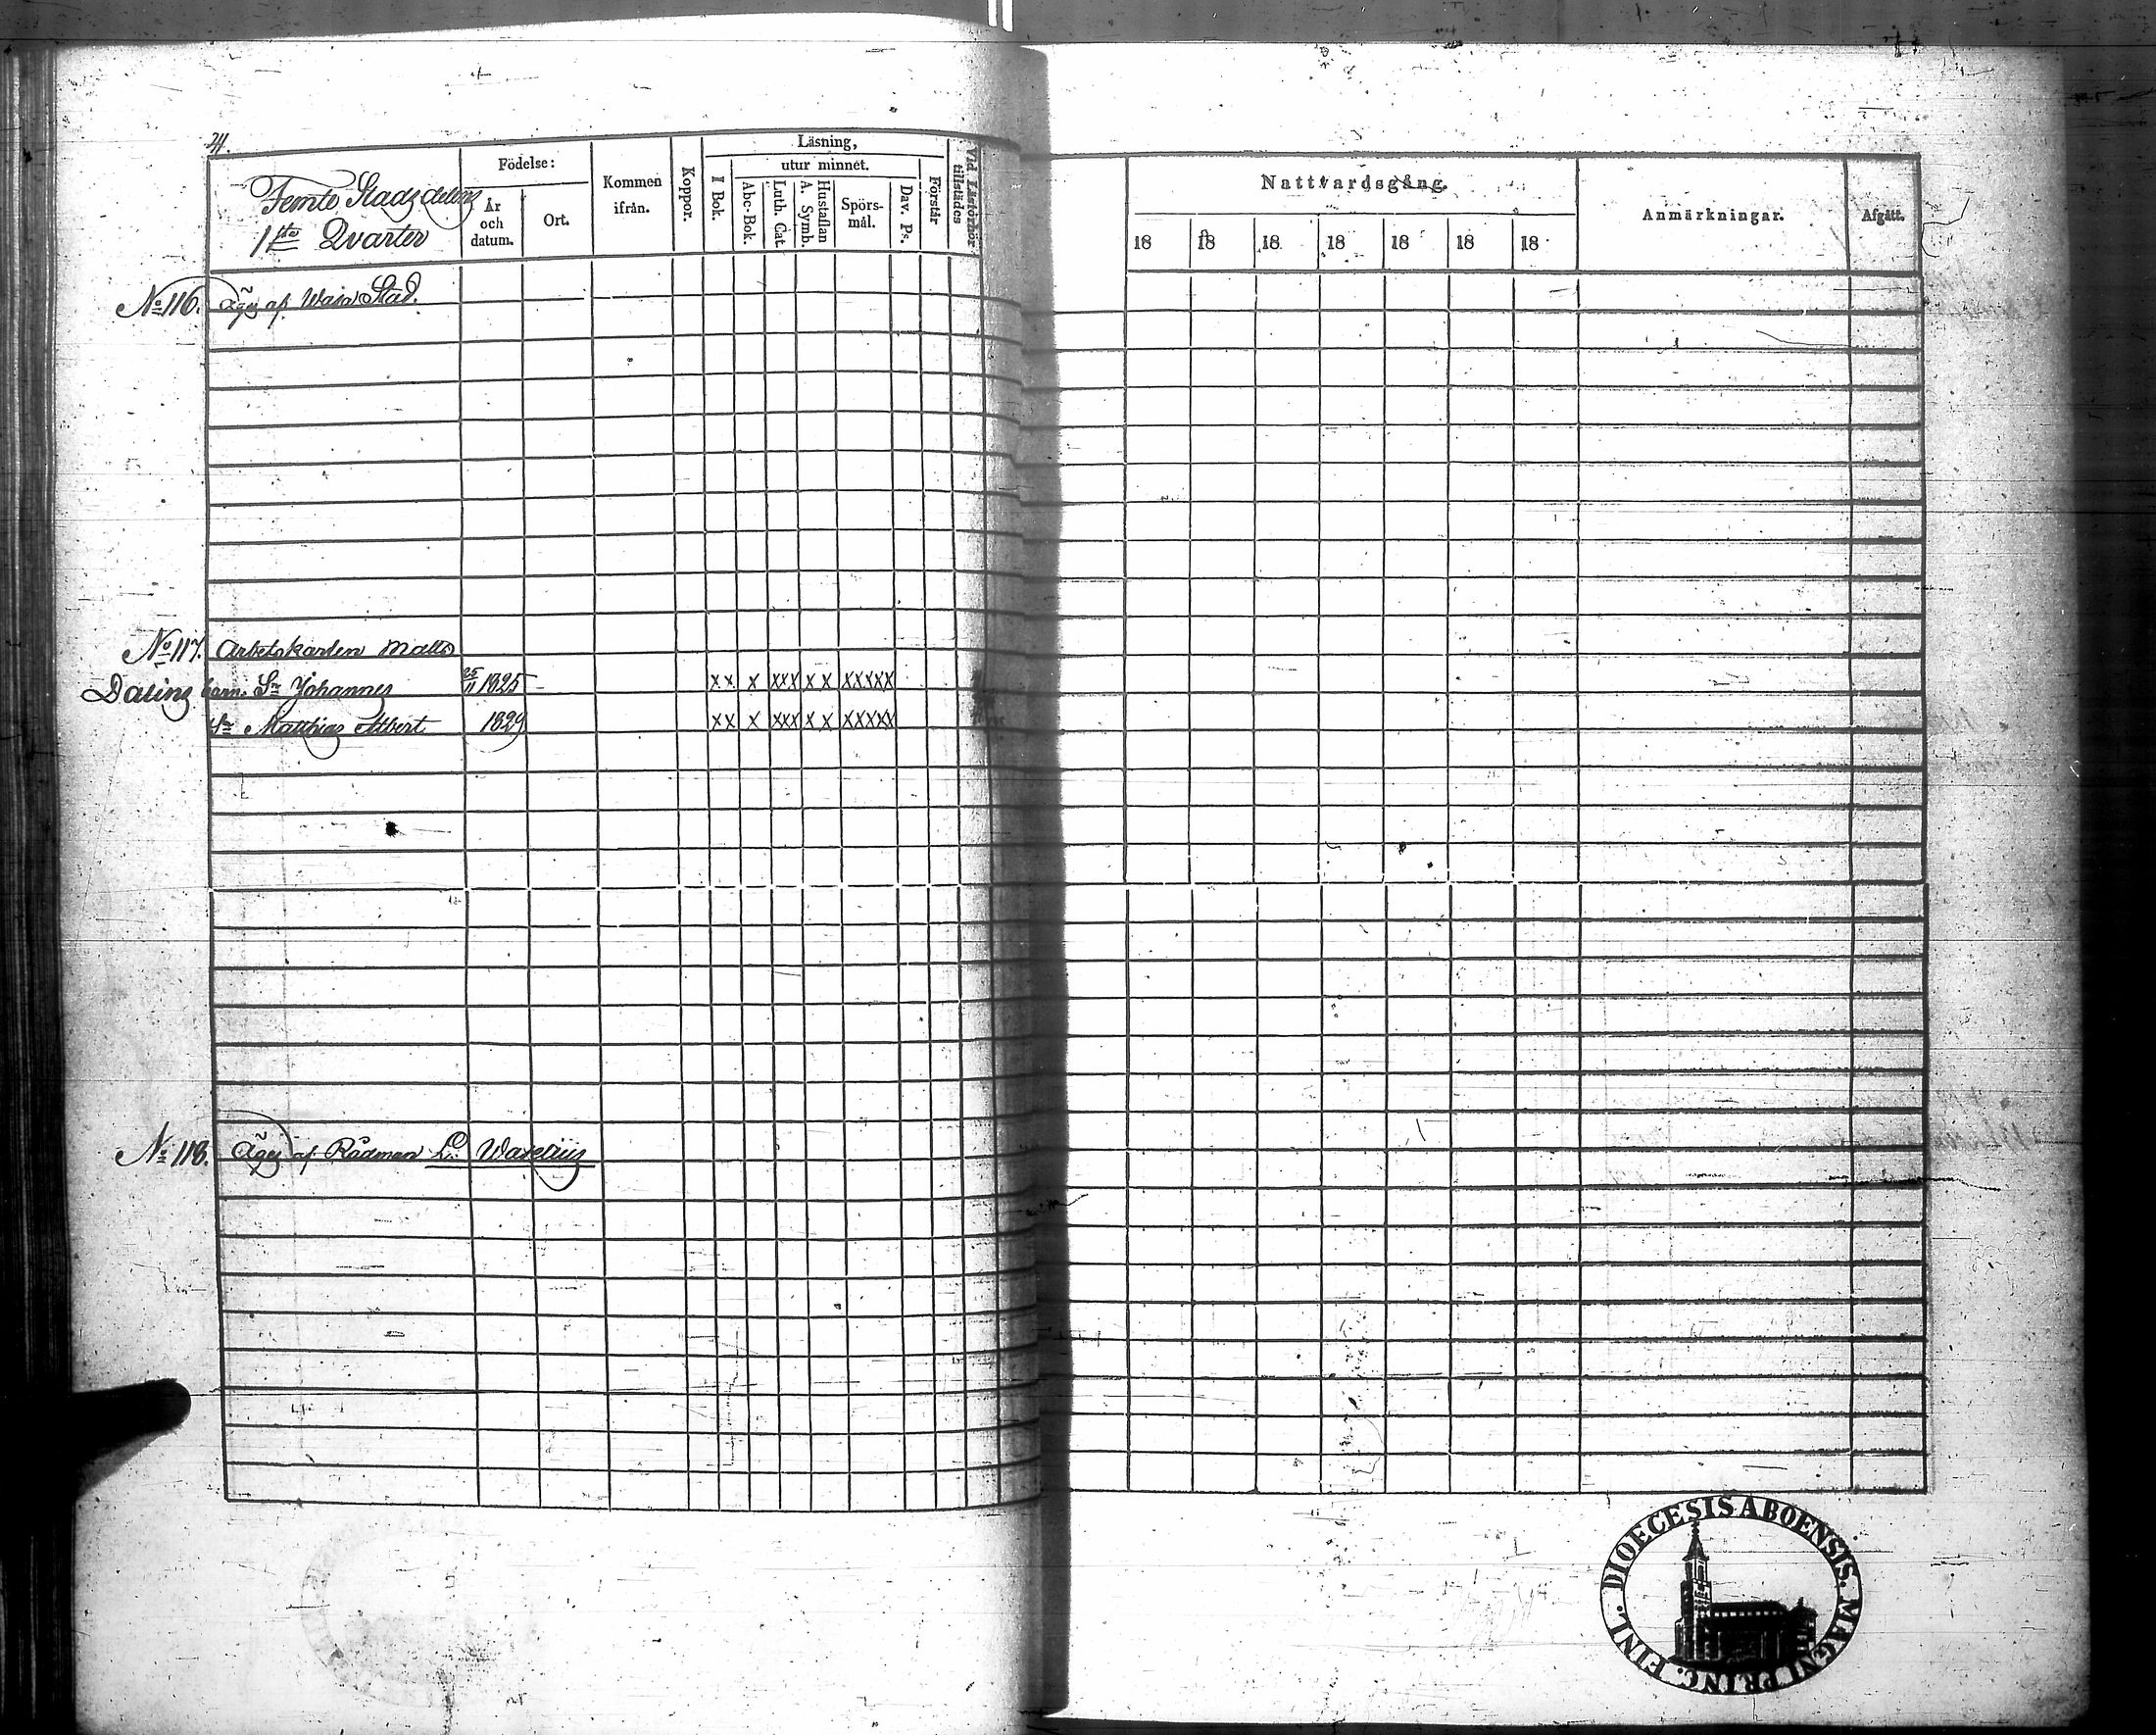 24.
Femte Stadsdelens
1sta Qvarter
Födelse:
År och datum.
Ort.
Kommen ifrån.
Koppor.
Läsning,
utur minnet.
I Bok.
Abc-Bok.
Luth. Cat.
A. Symb.
Hustaflan
Spörs-mål.
Dav. Ps.
Förstår
Vid Läsförhör tillstädes
Nattvardsgång.
18 18 18 18 18 18 18
Anmärkningar.
Afgått.
No 116. äges af Wasa Stad.
No 117. Arbetskarlen Matts
Dalins barn. Sn Johannes 25/11 1825 xx x xxx xx xxxxx
Sn Matthias Albert 1829 xx x xxx xx xxxxx
No 118. Äges af Rådman L. Waselius
DIOECESIS ABOENSIS. MAGNI PRINC. FINL.